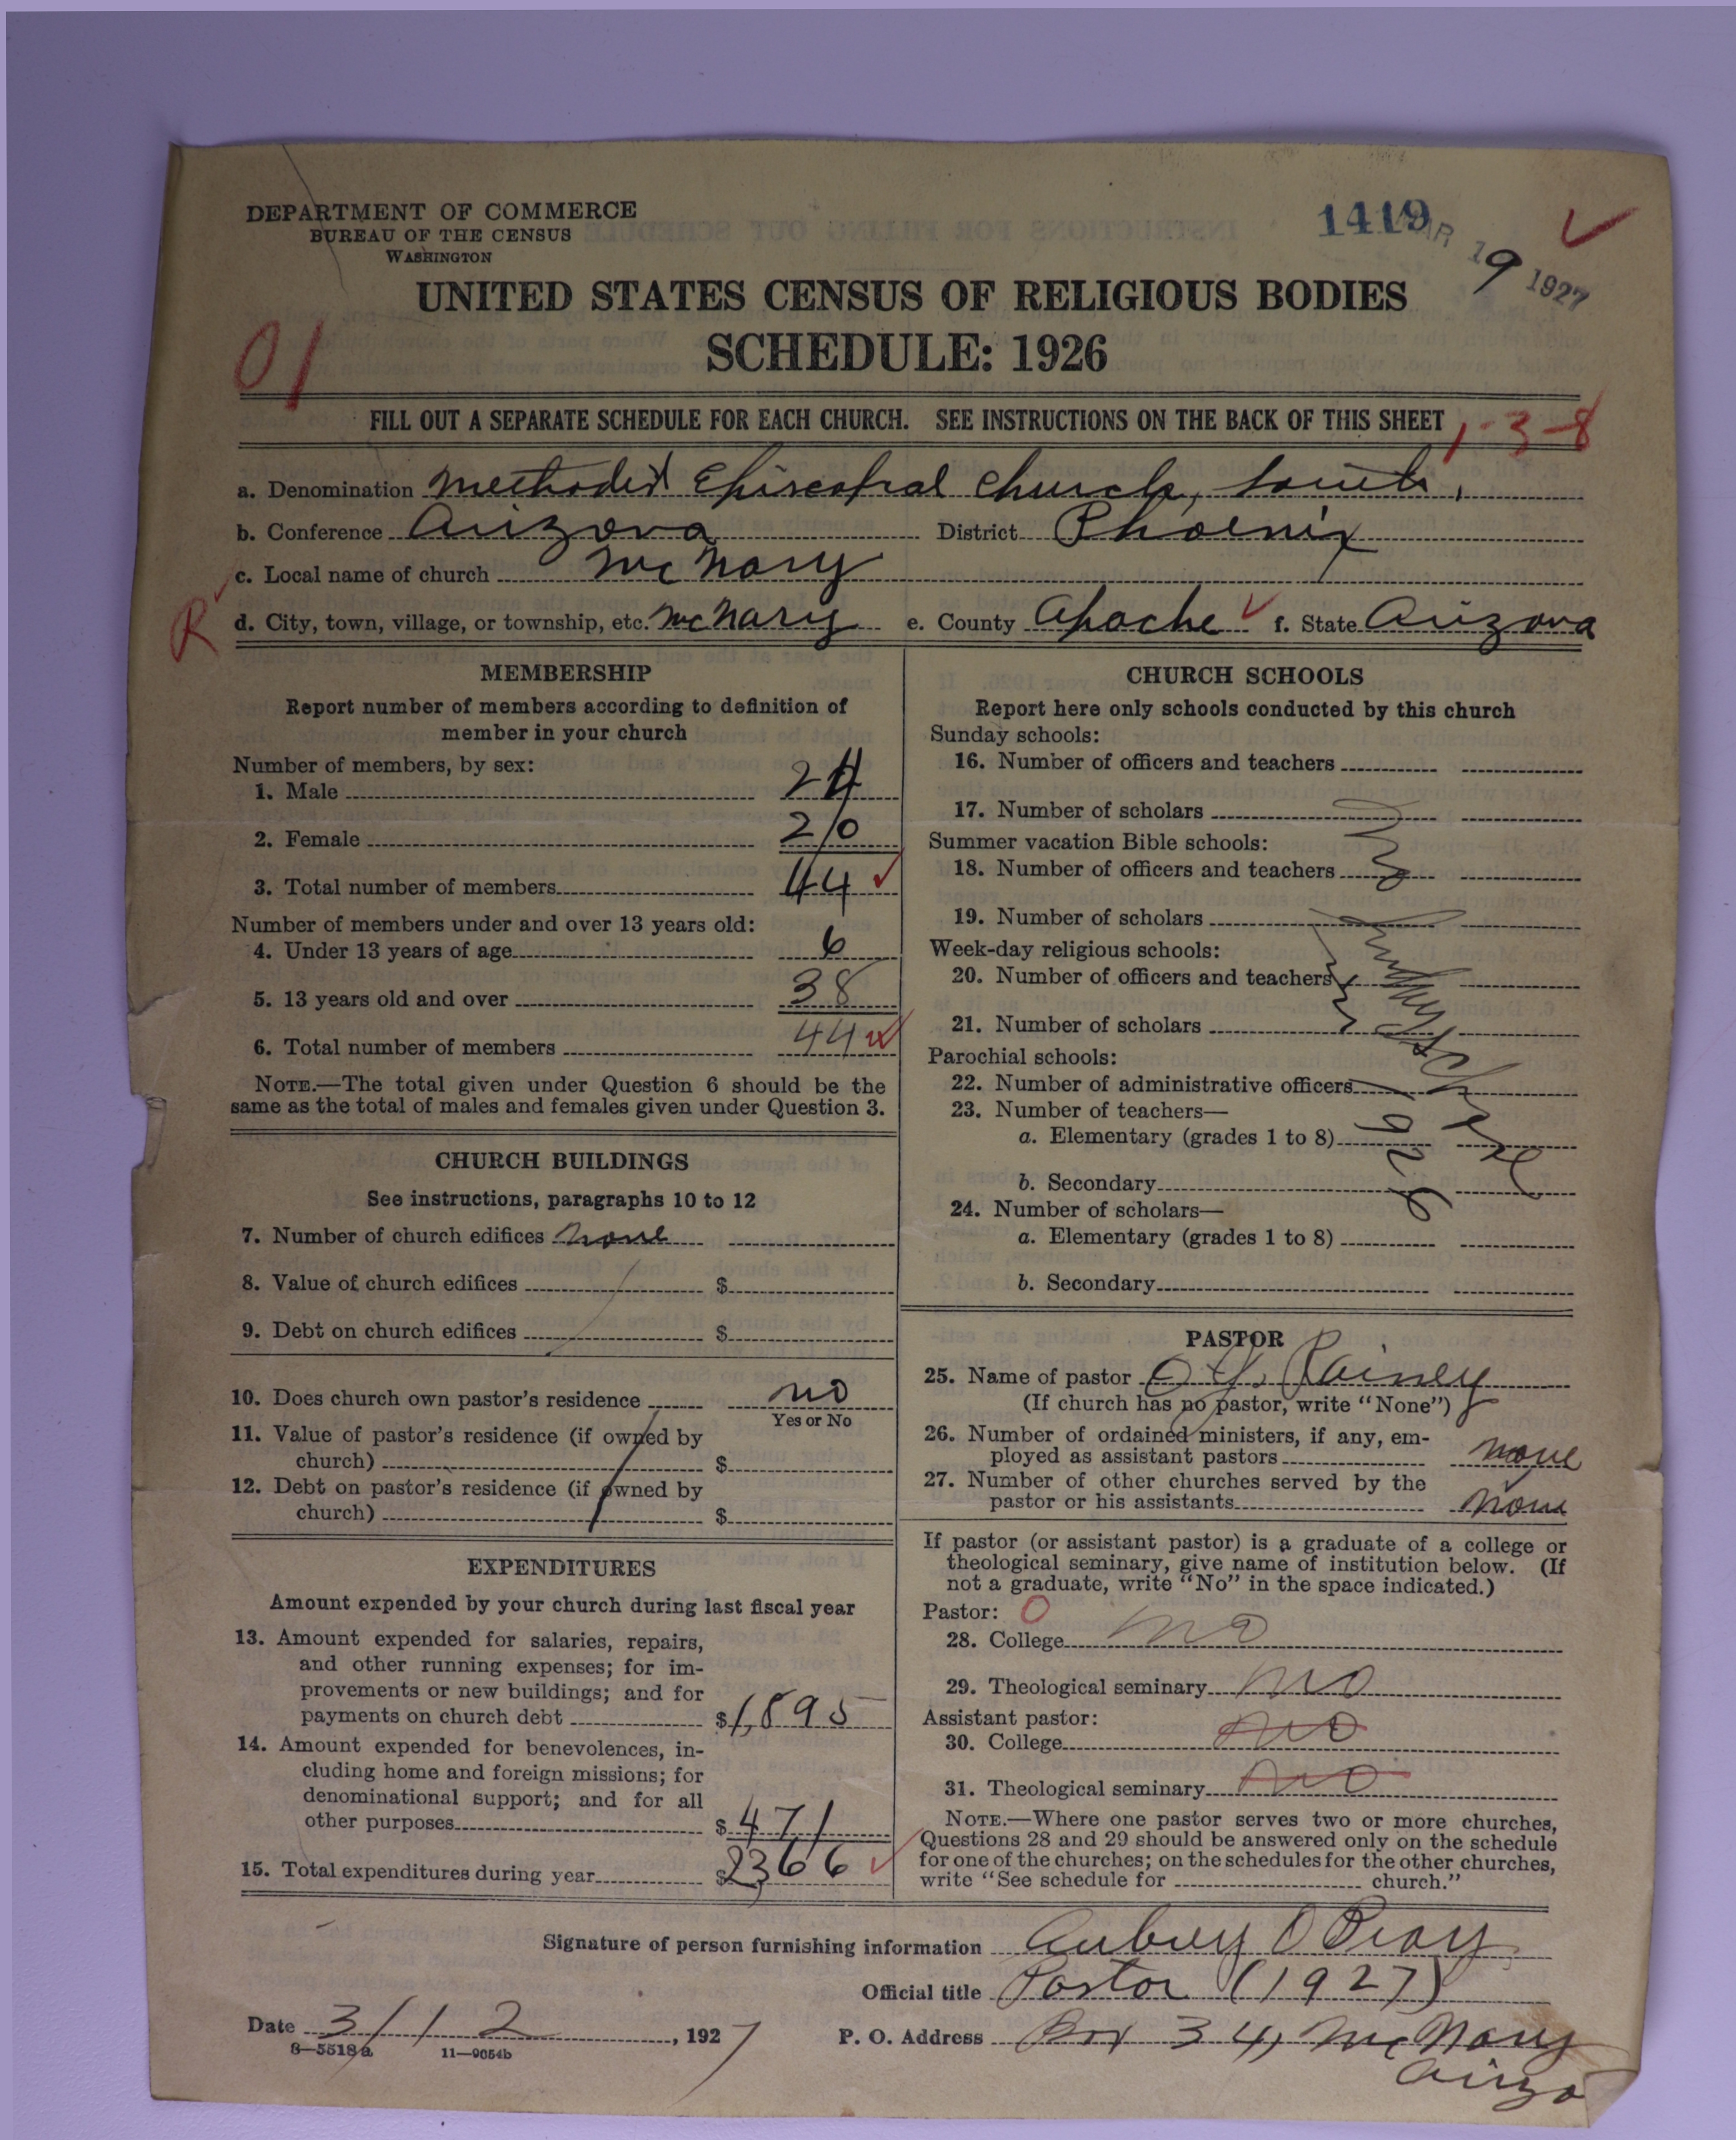 DEPARTMENT OF COMMERCE
BUREAU OF THE CENSUS
WASHINGTON
1419
MAR 19 1927
UNITED STATES CENSUS OF RELIGIOUS BODIES
SCHEDULE: 1926
01
FILL OUT A SEPARATE SCHEDULE FOR EACH CHURCH. SEE INSTRUCTIONS ON THE BACK OF THIS SHEET
1-3-8
a. Denomination Methodist Episcopal Church, South,
b. Conference Arizona District Phoenix
c. Local name of church McNary
R
d. City, town, village, or township, etc. McNary e. County Apache f. State Arizona
MEMBERSHIP
Report number of members according to definition of
member in your church
Number of members, by sex:
1. Male 24
2. Female 20
3. Total number of members 44
Number of members under and over 13 years old:
4. Under 13 years of age 6
5. 13 years old and over 38
6. Total number of members 44
NOTE.—The total given under Question 6 should be the
same as the total of males and females given under Question 3.
CHURCH BUILDINGS
See instructions, paragraphs 10 to 12
7. Number of church edifices none
8. Value of church edifices $
9. Debt on church edifices $
10. Does church own pastor's residence no
Yes or No
11. Value of pastor's residence (if owned by
church) $
12. Debt on pastor's residence (if owned by
church) $
EXPENDITURES
Amount expended by your church during last fiscal year
13. Amount expended for salaries, repairs,
and other running expenses; for im-
provements or new buildings; and for
payments on church debt $1,895
14. Amount expended for benevolences, in-
cluding home and foreign missions; for
denominational support; and for all
other purposes $471
15. Total expenditures during year $2,366
CHURCH SCHOOLS
Report here only schools conducted by this church
Sunday schools:
16. Number of officers and teachers
17. Number of scholars
Summer vacation Bible schools:
18. Number of officers and teachers
19. Number of scholars
Week-day religious schools:
20. Number of officers and teachers
21. Number of scholars
Parochial schools:
22. Number of administrative officers
23. Number of teachers—
a. Elementary (grades 1 to 8)
b. Secondary
24. Number of scholars—
a. Elementary (grades 1 to 8)
b. Secondary
PASTOR
25. Name of pastor O Y. Rainey
(If church has no pastor, write "None")
26. Number of ordained ministers, if any, em-
ployed as assistant pastors none
27. Number of other churches served by the
pastor or his assistants none
If pastor (or assistant pastor) is a graduate of a college or
theological seminary, give name of institution below. (If
not a graduate, write "No" in the space indicated.)
Pastor: 0
28. College no
29. Theological seminary no
Assistant pastor:
30. College no
31. Theological seminary no
NOTE.—Where one pastor serves two or more churches,
Questions 28 and 29 should be answered only on the schedule
for one of the churches; on the schedules for the other churches,
write "See schedule for church."
Signature of person furnishing information Aubrey O Bray
Official title Pastor (1927)
Date 3/12, 1927 P. O. Address Box 34, McNary
Ariz
8—5518a 11—9054b